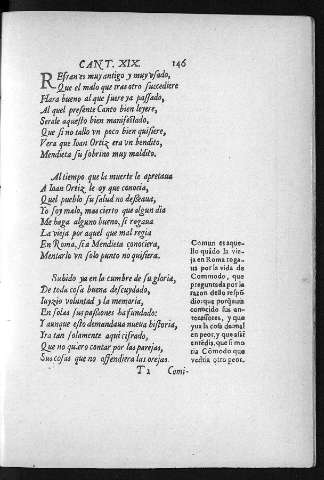 CANT. XIX. 146
REfran es muy antigo y muy vsado,
Que el malo que tras otro succediere
Hara bueno al que fuere ya passado,
Al quel presente Canto bien leyere,
Serale aquesto bien manifestado,
Que si no tallo vn poco bien quisiere,
Vera que Ioan Ortiz era vn bendito,
Mendieta su sobrino muy maldito.
Al tiempo que la muerte le apretaua
A Ioan Ortiz le oy que conocia,
Quel pueblo su salud no desseaua,
Yo soy malo, mas cierto que algun dia
Me haga alguno bueno, si rogaua
La vieja por aquel que mal regia
En Roma, si a Mendieta conociera,
Mentarlo vn solo punto no quisiera.
Subido ya en la cumbre de su gloria,
De toda cosa buena descuydado,
Iuyzio voluntad y la memoria,
En solas sus passiones ha fundado:
Y aunque esto demandaua nueua historia,
Ira tan solamente aqui cifrado,
Que no quiero contar por las parejas,
Sus cosas que no offendiera las orejas.
Comun es aque-
llo quãdo la vie-
ja en Roma roga-
ua por la vida de
Commodo, que
preguntada por la
razon dello respõ-
dio: que porq̃ auia
conocido sus an-
tecessores, y que
yua la cosa de mal
en peor, y que assi
entẽdia, que si mo
ria Cõmodo que
verdria otro peor.
T 2 Comi-